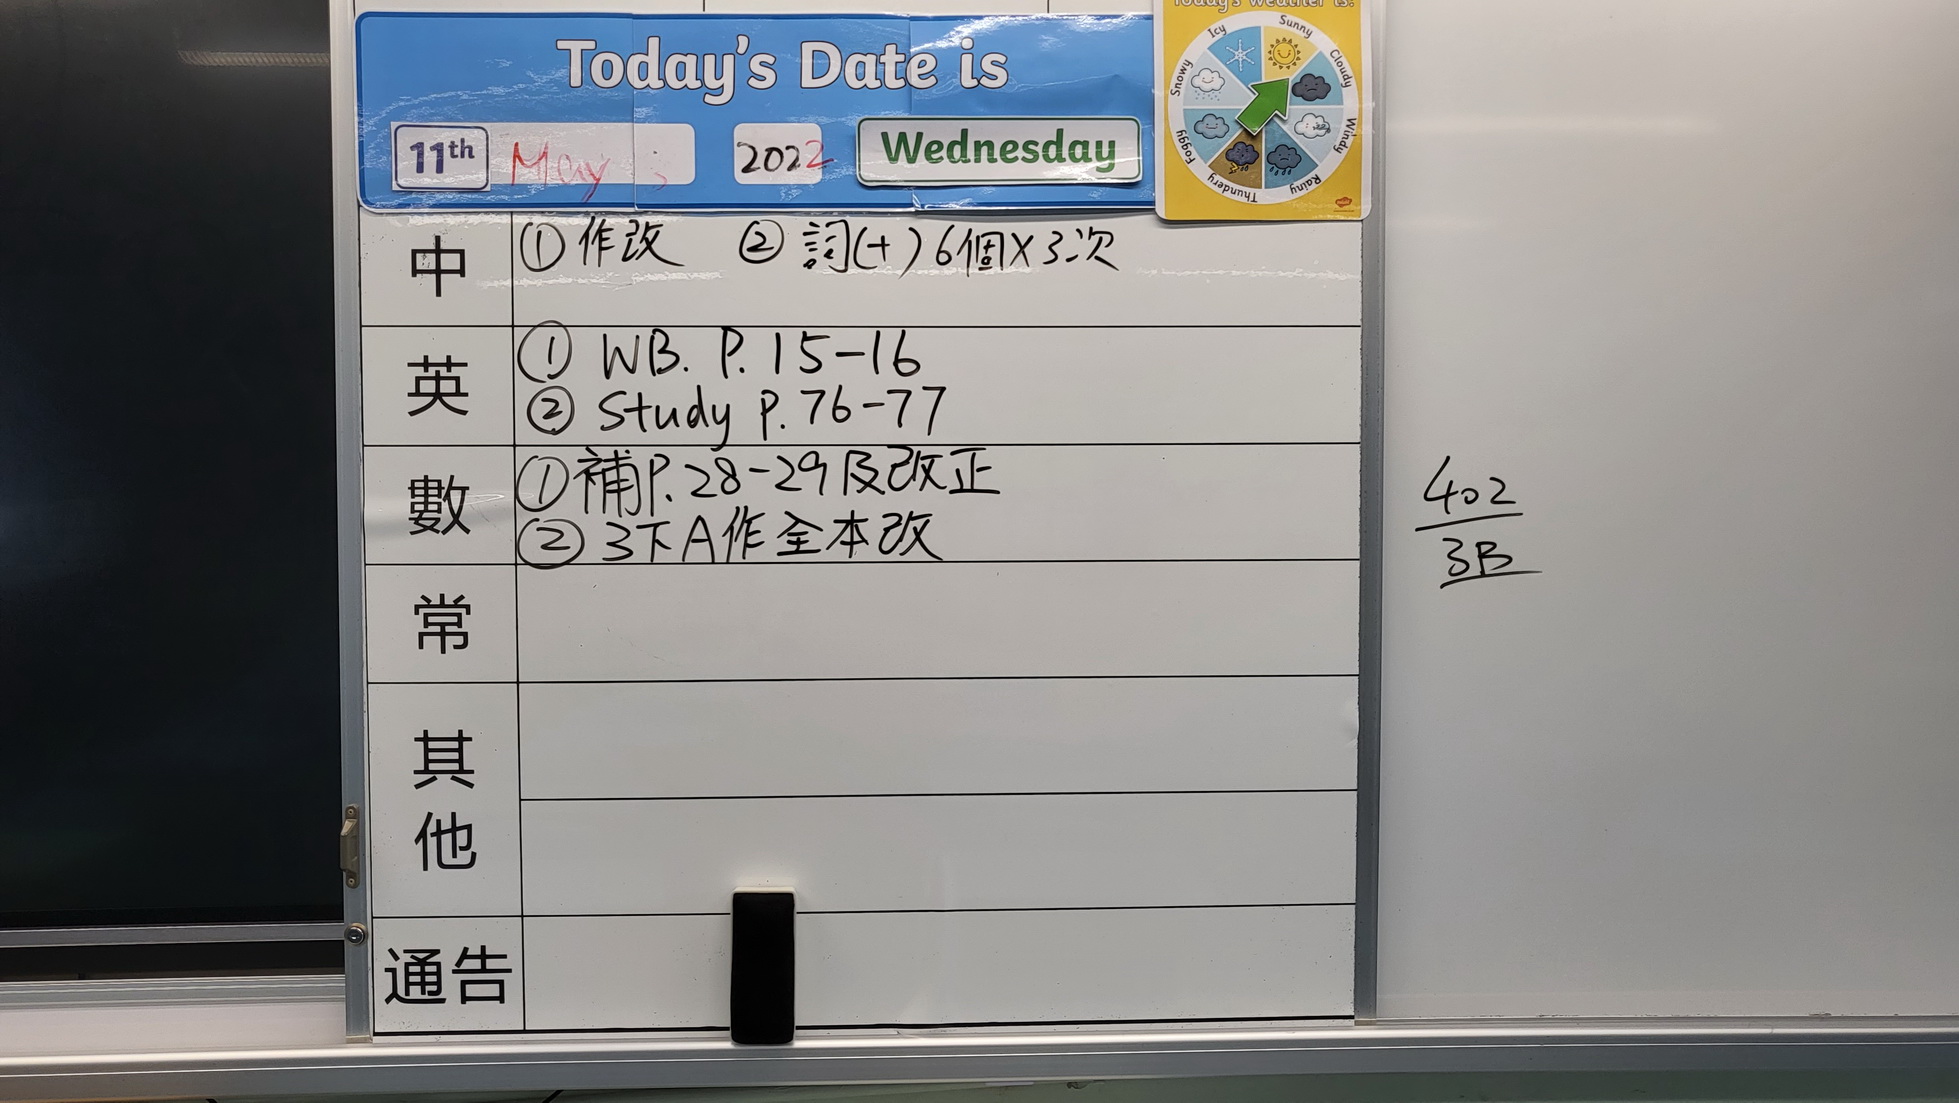 Today's Weather is:
Icy
Sunny
Cloudy
Windy
Rainy
Thundery
Foggy
Snowy
Today's Date is
11th May ; 2022 Wednesday
中 ①作改 ②詞(十)6個X3次
英 ① WB. P.15-16
② Study P.76-77
數 ①補P.28-29及改正
② 3下A作全本改
常
其他
通告
402
3B